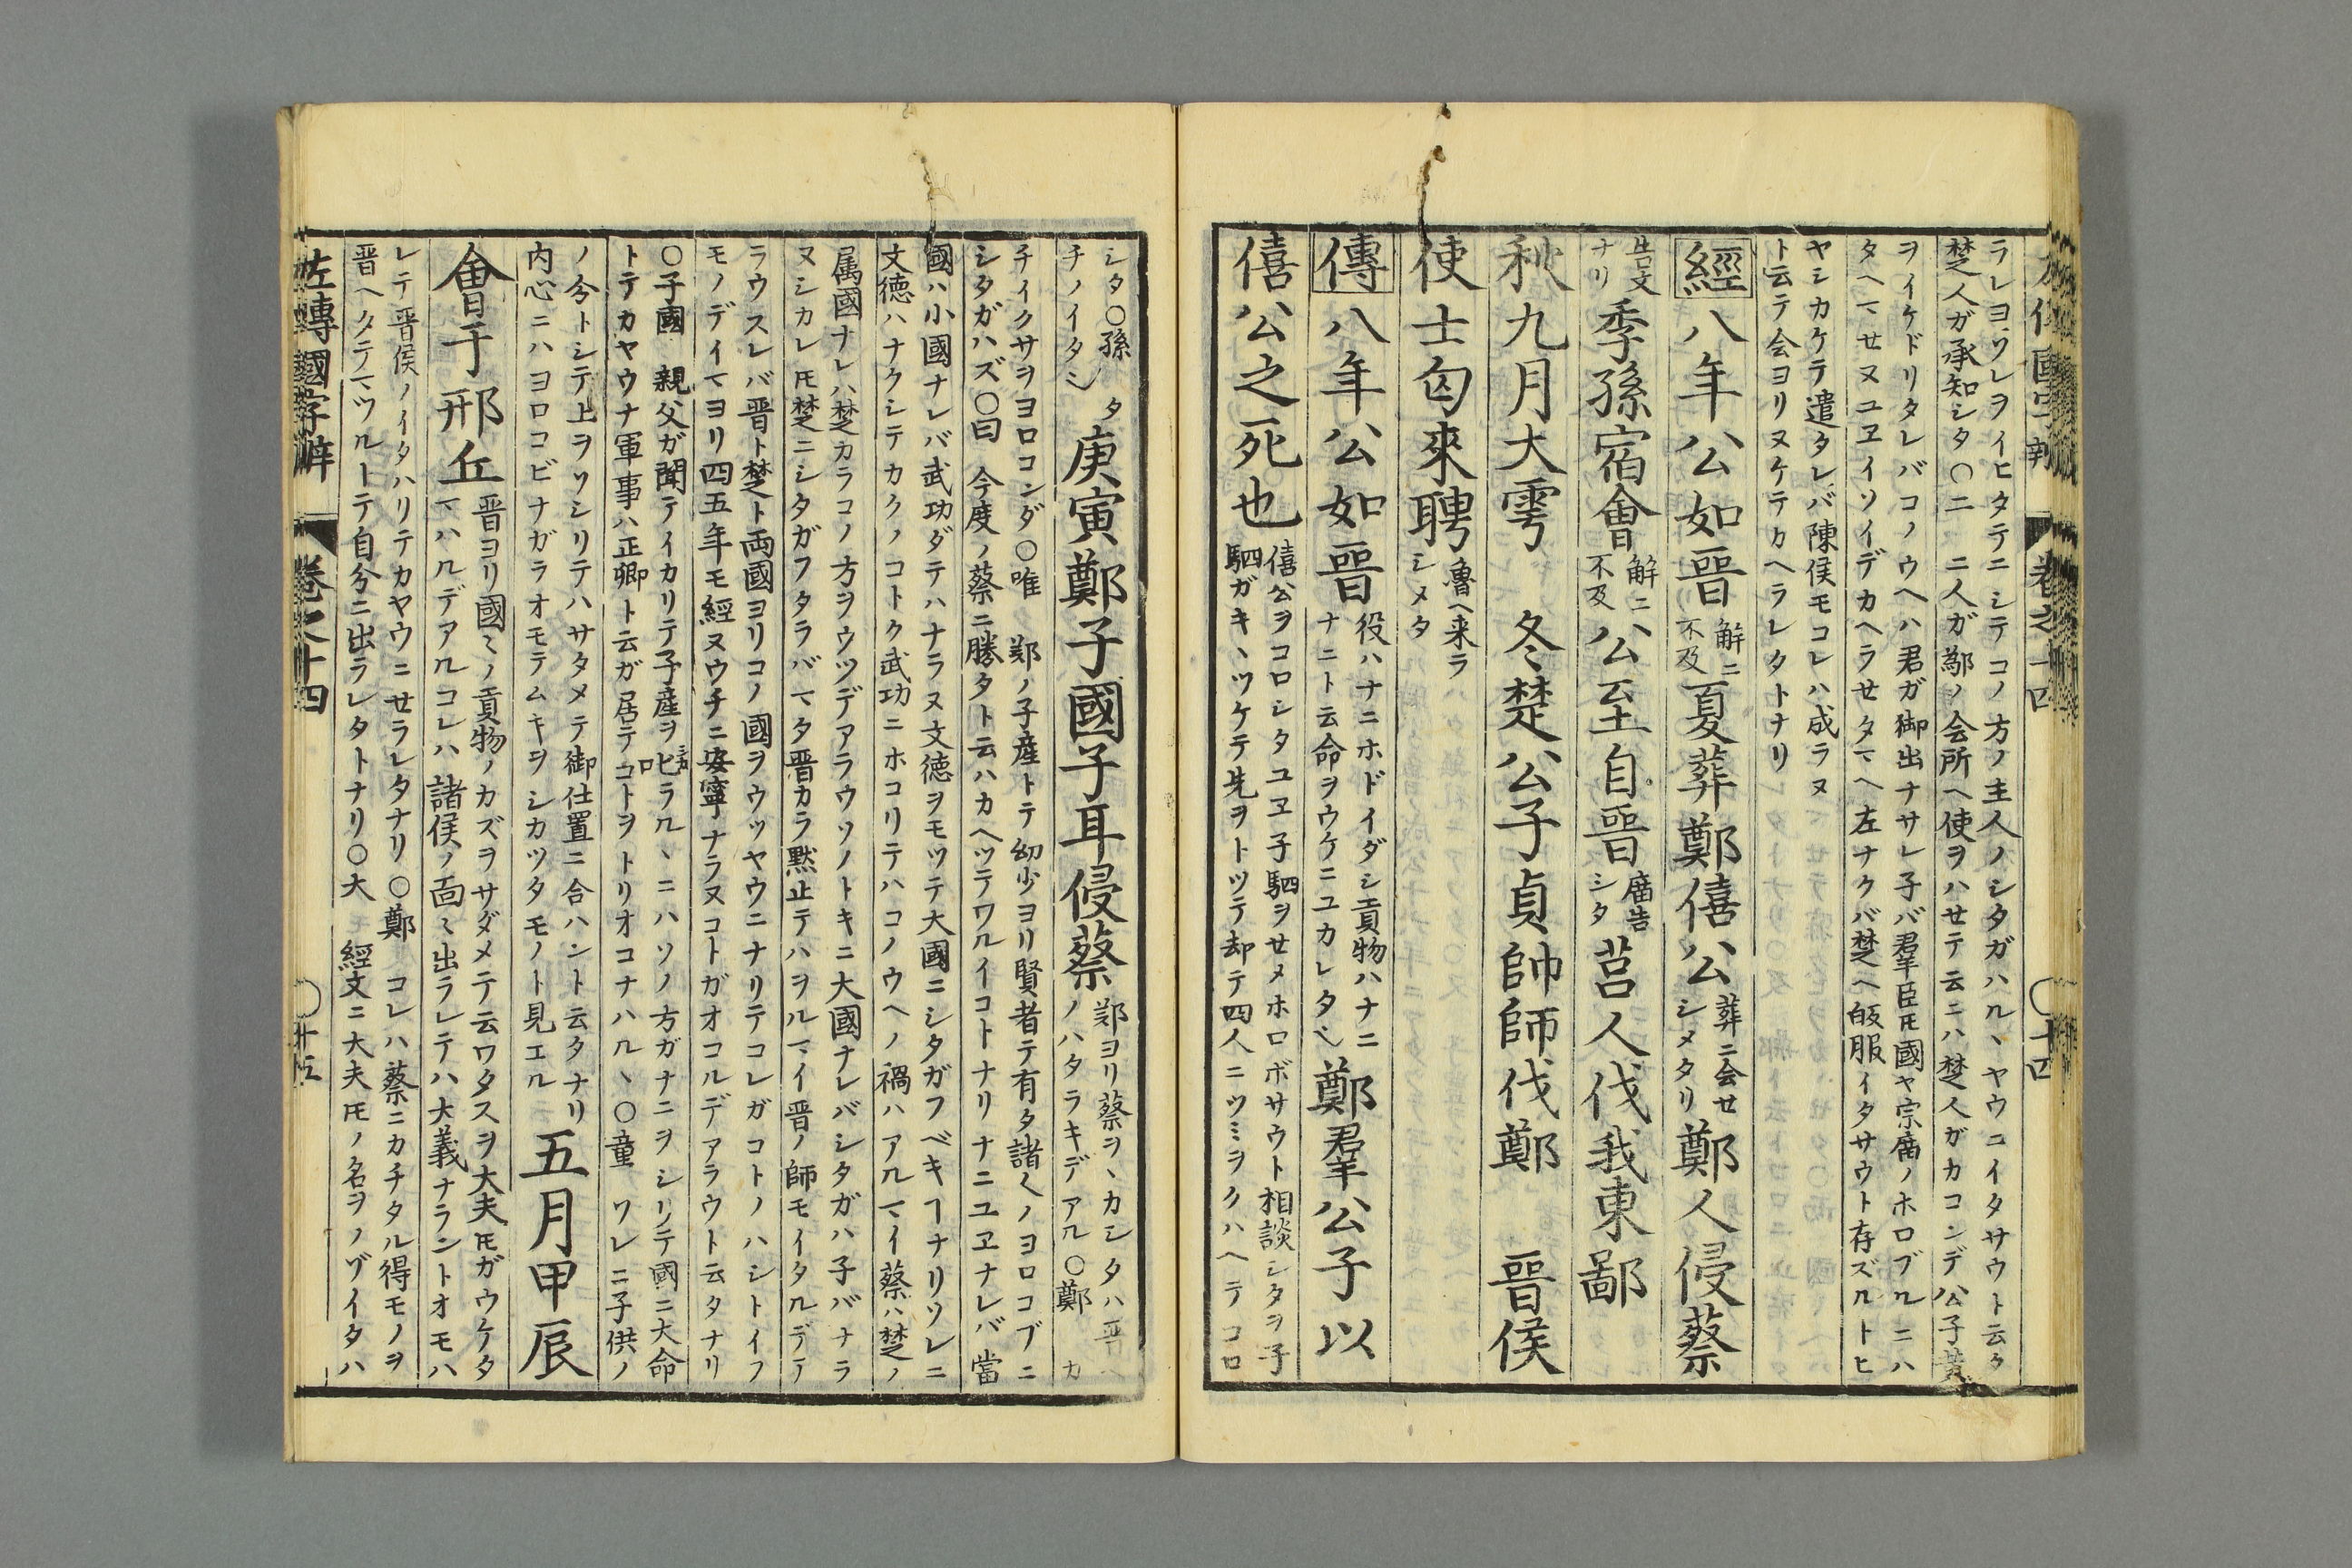 ラレヨソレヲイヒタテニシテコノ方ノ主人ノシタガハルヽヤウニイタサウト云タ
楚人ガ承知シタ〇二 二人ガ鄬ノ会所ヘ使ヲハセテ云ニハ楚人ガカコンデ公子黃
ヲイケドリタレバコノウヘハ君ガ御出ナサレ子バ羣臣㒵國ヤ宗廟ノホロブルニハ
タヘマせヌユヱイソイデカヘラせタマヘ左ナクバ楚ヘ皈服イタサウト存ズルトヒ
ヤシカケテ遣タレバ陳侯モコレハ成ラヌ
ト云テ会ヨリヌケテカヘラレタトナリ
經八年公如晉解ニ不及夏葬鄭僖公葬ニ会せシメタリ鄭人侵蔡
告文ナリ季孫宿會解ニ不及公至自晉廣告シタ莒人伐我東鄙
秋九月大雩 冬楚公子貞帥師伐鄭 晉侯
使士匄來聘魯ヘ来ラシメタ
傳八年公如晉役ハナニホドイダシ貢物ハナニナニト云命ヲウケニユカレタヘ鄭羣公子以
僖公之死也僖公ヲコロシタユヱ子駟ヲせメホロボサウト相談シタヲ子駟ガキヽツケテ先ヲトツテ却テ四人ニツミヲクハヘテコロ
シタ〇孫 タチノイタシ庚寅鄭子國子耳侵蔡鄭ヨリ蔡ヲヽカシタハノハタラキデアル〇鄭
チイクサヲヨロコンダ〇唯 鄭ノ子産トテ幼少ヨリ賢者テ有タ諸人ノヨロコブニ
シタガハズ〇曰 今度ノ蔡ニ勝タト云ハカヘツテワルイコトナリナニユヱナレバ當
國ハ小國ナレバ武功ダテハナラヌ文徳ヲモツテ大國ニシタガフベキヿナリソレニ
文徳ハナクシテカクノコトク武功ニホコリテハコノウヘノ禍ハアルマイ蔡ハ楚ノ
属國ナレハ楚カラコノ方ヲウツデアラウソノトキニ大國ナレバシタガハ子バナラ
ヌシカレ𪜈楚ニシタガフタラバマタ晋カラ黙止テハヲルマイ晋ノ師モイタルデア
ラウスレバ晋ト楚ト両國ヨリコノ國ヲウツヤウニナリテコレガコトノハシトイフ
モノデイマヨリ四五年モ經ヌウチニ安寧ナラヌコトガオコルデアラウト云タナリ
〇子國 親父ガ聞テイカリテ子産ヲ叱ラルヽニハソノ方ガナニヲシリテ國ニ大命
トテカヤウナ軍事ハ正卿ト云ガ居テコトヲトリオコナハルヽ〇童 ワレニ子供ノ
ノ分トシテ上ヲソシリテハサタメテ御仕置ニ合ハント云タナリ
内心ニハヨロコビナガラオモテムキヲシカツタモノト見エル五月甲辰
會于邢丘晋ヨリ國〻ノ貢物ノカズヲサダメテ云ワタスヲ大夫𪜈ガウケタマハルデアルコレハ諸侯ノ面〻出ラレテハ大義ナラントオモハ
レテ晋侯ノイタハリテカヤウニせラレタナリ〇鄭 コレハ蔡ニカチタル得モノヲ
晋ヘタテマツルトテ自分ニ出ラレタトナリ〇大 經文ニ大夫𪜈ノ名ヲノゾイタハ
左傳國字辯 卷之十四 〇廿五